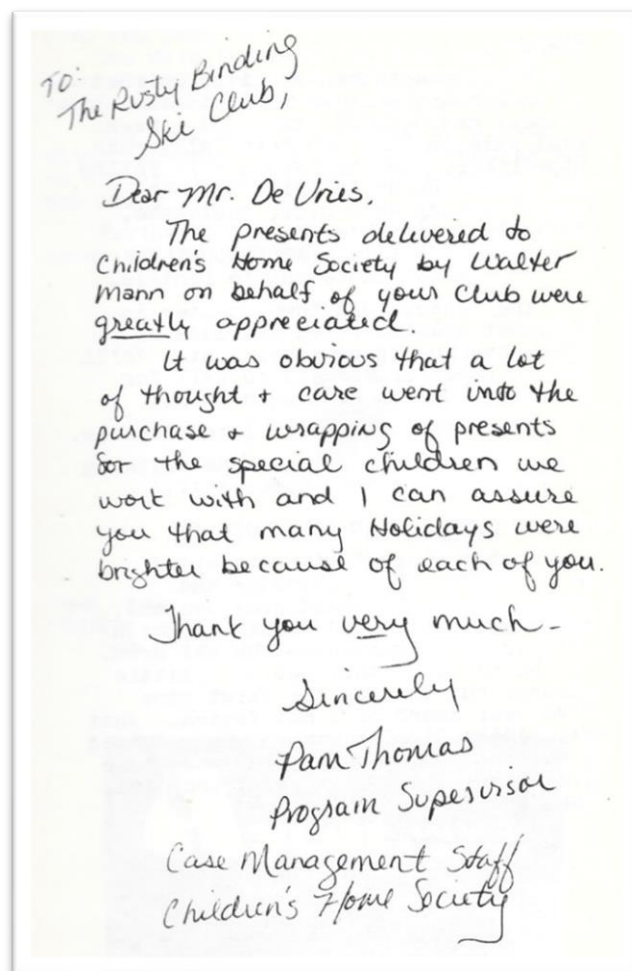 TO:
The Rusty Binding
Ski Club,
Dear Mr. De Vries,
The presents delivered to
Children's Home Society by Walter
Mann on behalf of your club were
greatly appreciated.
It was obvious that a lot
of thought + care went into the
purchase + wrapping of presents
for the special children we
work with and I can assure
you that many Holidays were
brighter because of each of you.
Thank you very much -
Sincerely
Pam Thomas
Program Supervisor
Case Management Staff
Children's Home Society